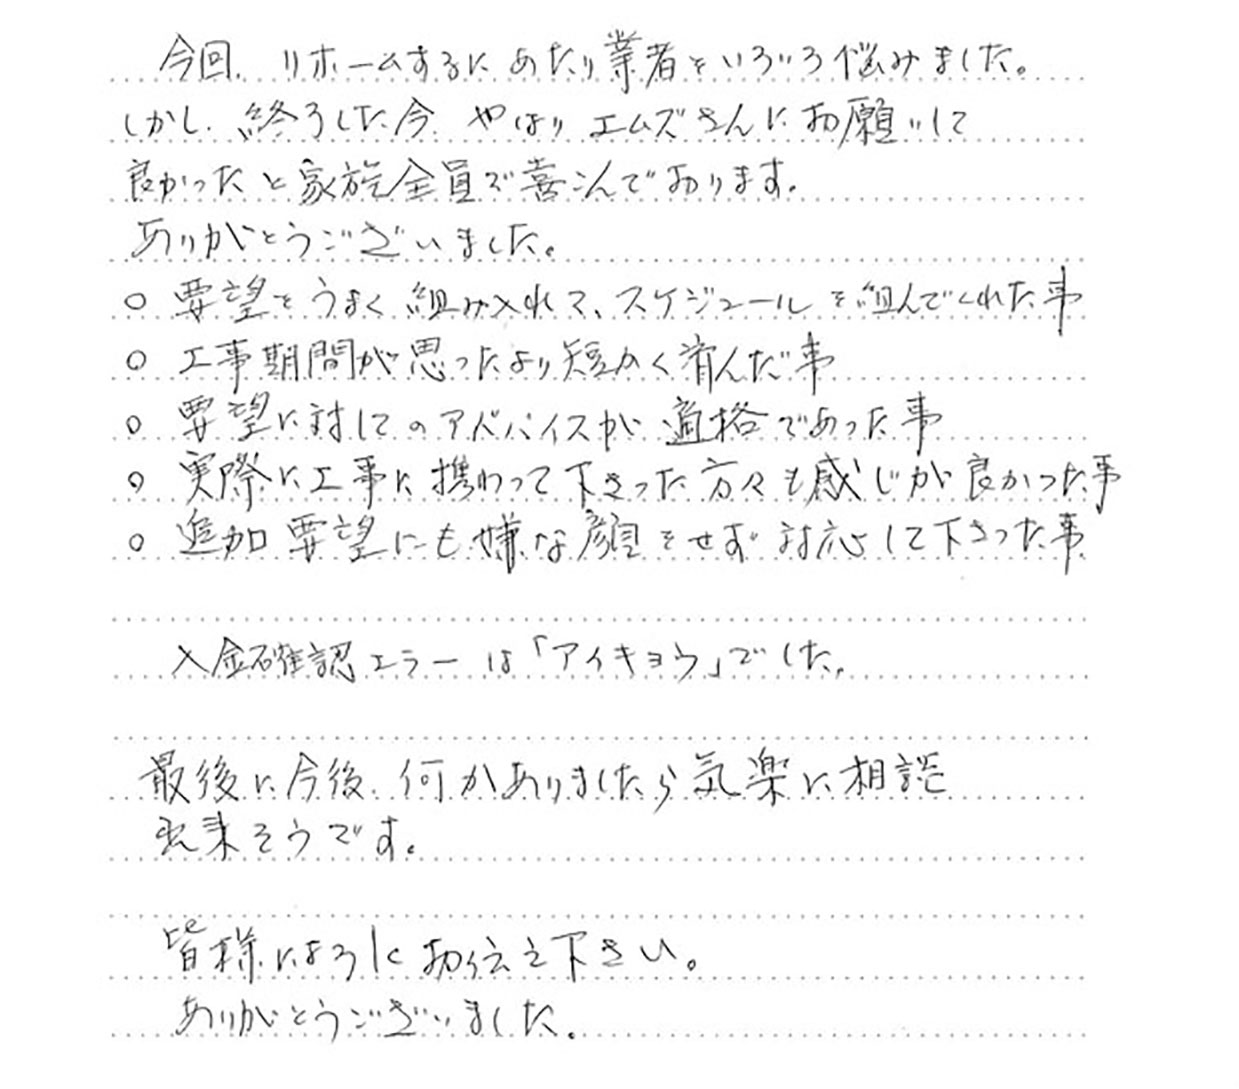 今回、リホームするにあたり業者をいろいろ悩みました。
しかし、終了した今、やはりエムズさんにお願いして
良かったと家族全員で喜こんでおります。
ありがとうございました。
○ 要望をうまく組み入れて、スケジュールを組んでくれた事
○ 工事期間が思ったより短かく済んだ事
○ 要望に対してのアドバイスが適格であった事
○ 実際に工事に携わって下さった方々も感じが良かった事
○ 追加要望にも嫌な顔をせず対応して下さった事
入金確認エラーは「アイキョウ」でした。
最後に今後、何かありましたら気楽に相談
出来そうです。
皆様によろしくお伝え下さい。
ありがとうございました。